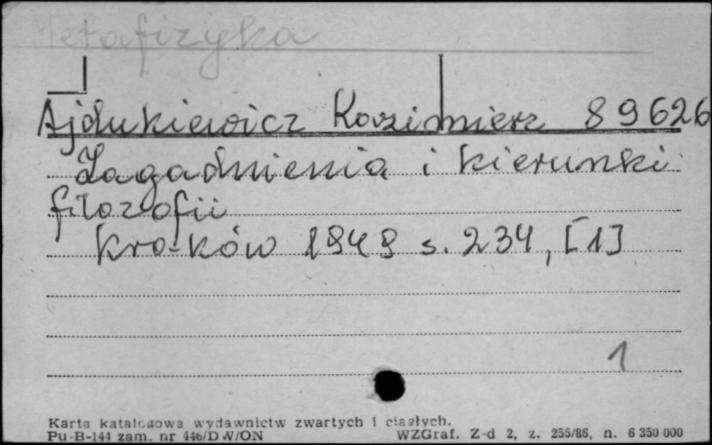 Metafizyka
Ajdukiewicz Kazimierz 89626
Zagadnienia i kierunki
filozofii
Kraków 1949 s. 234, [1]
1
Karta katalogowa wydawnictw zwartych i ciągłych.
Pu-B-144 zam. nr 446/DW/ON WZGraf. Z-d 2, z. 255/86, n. 6 350 000